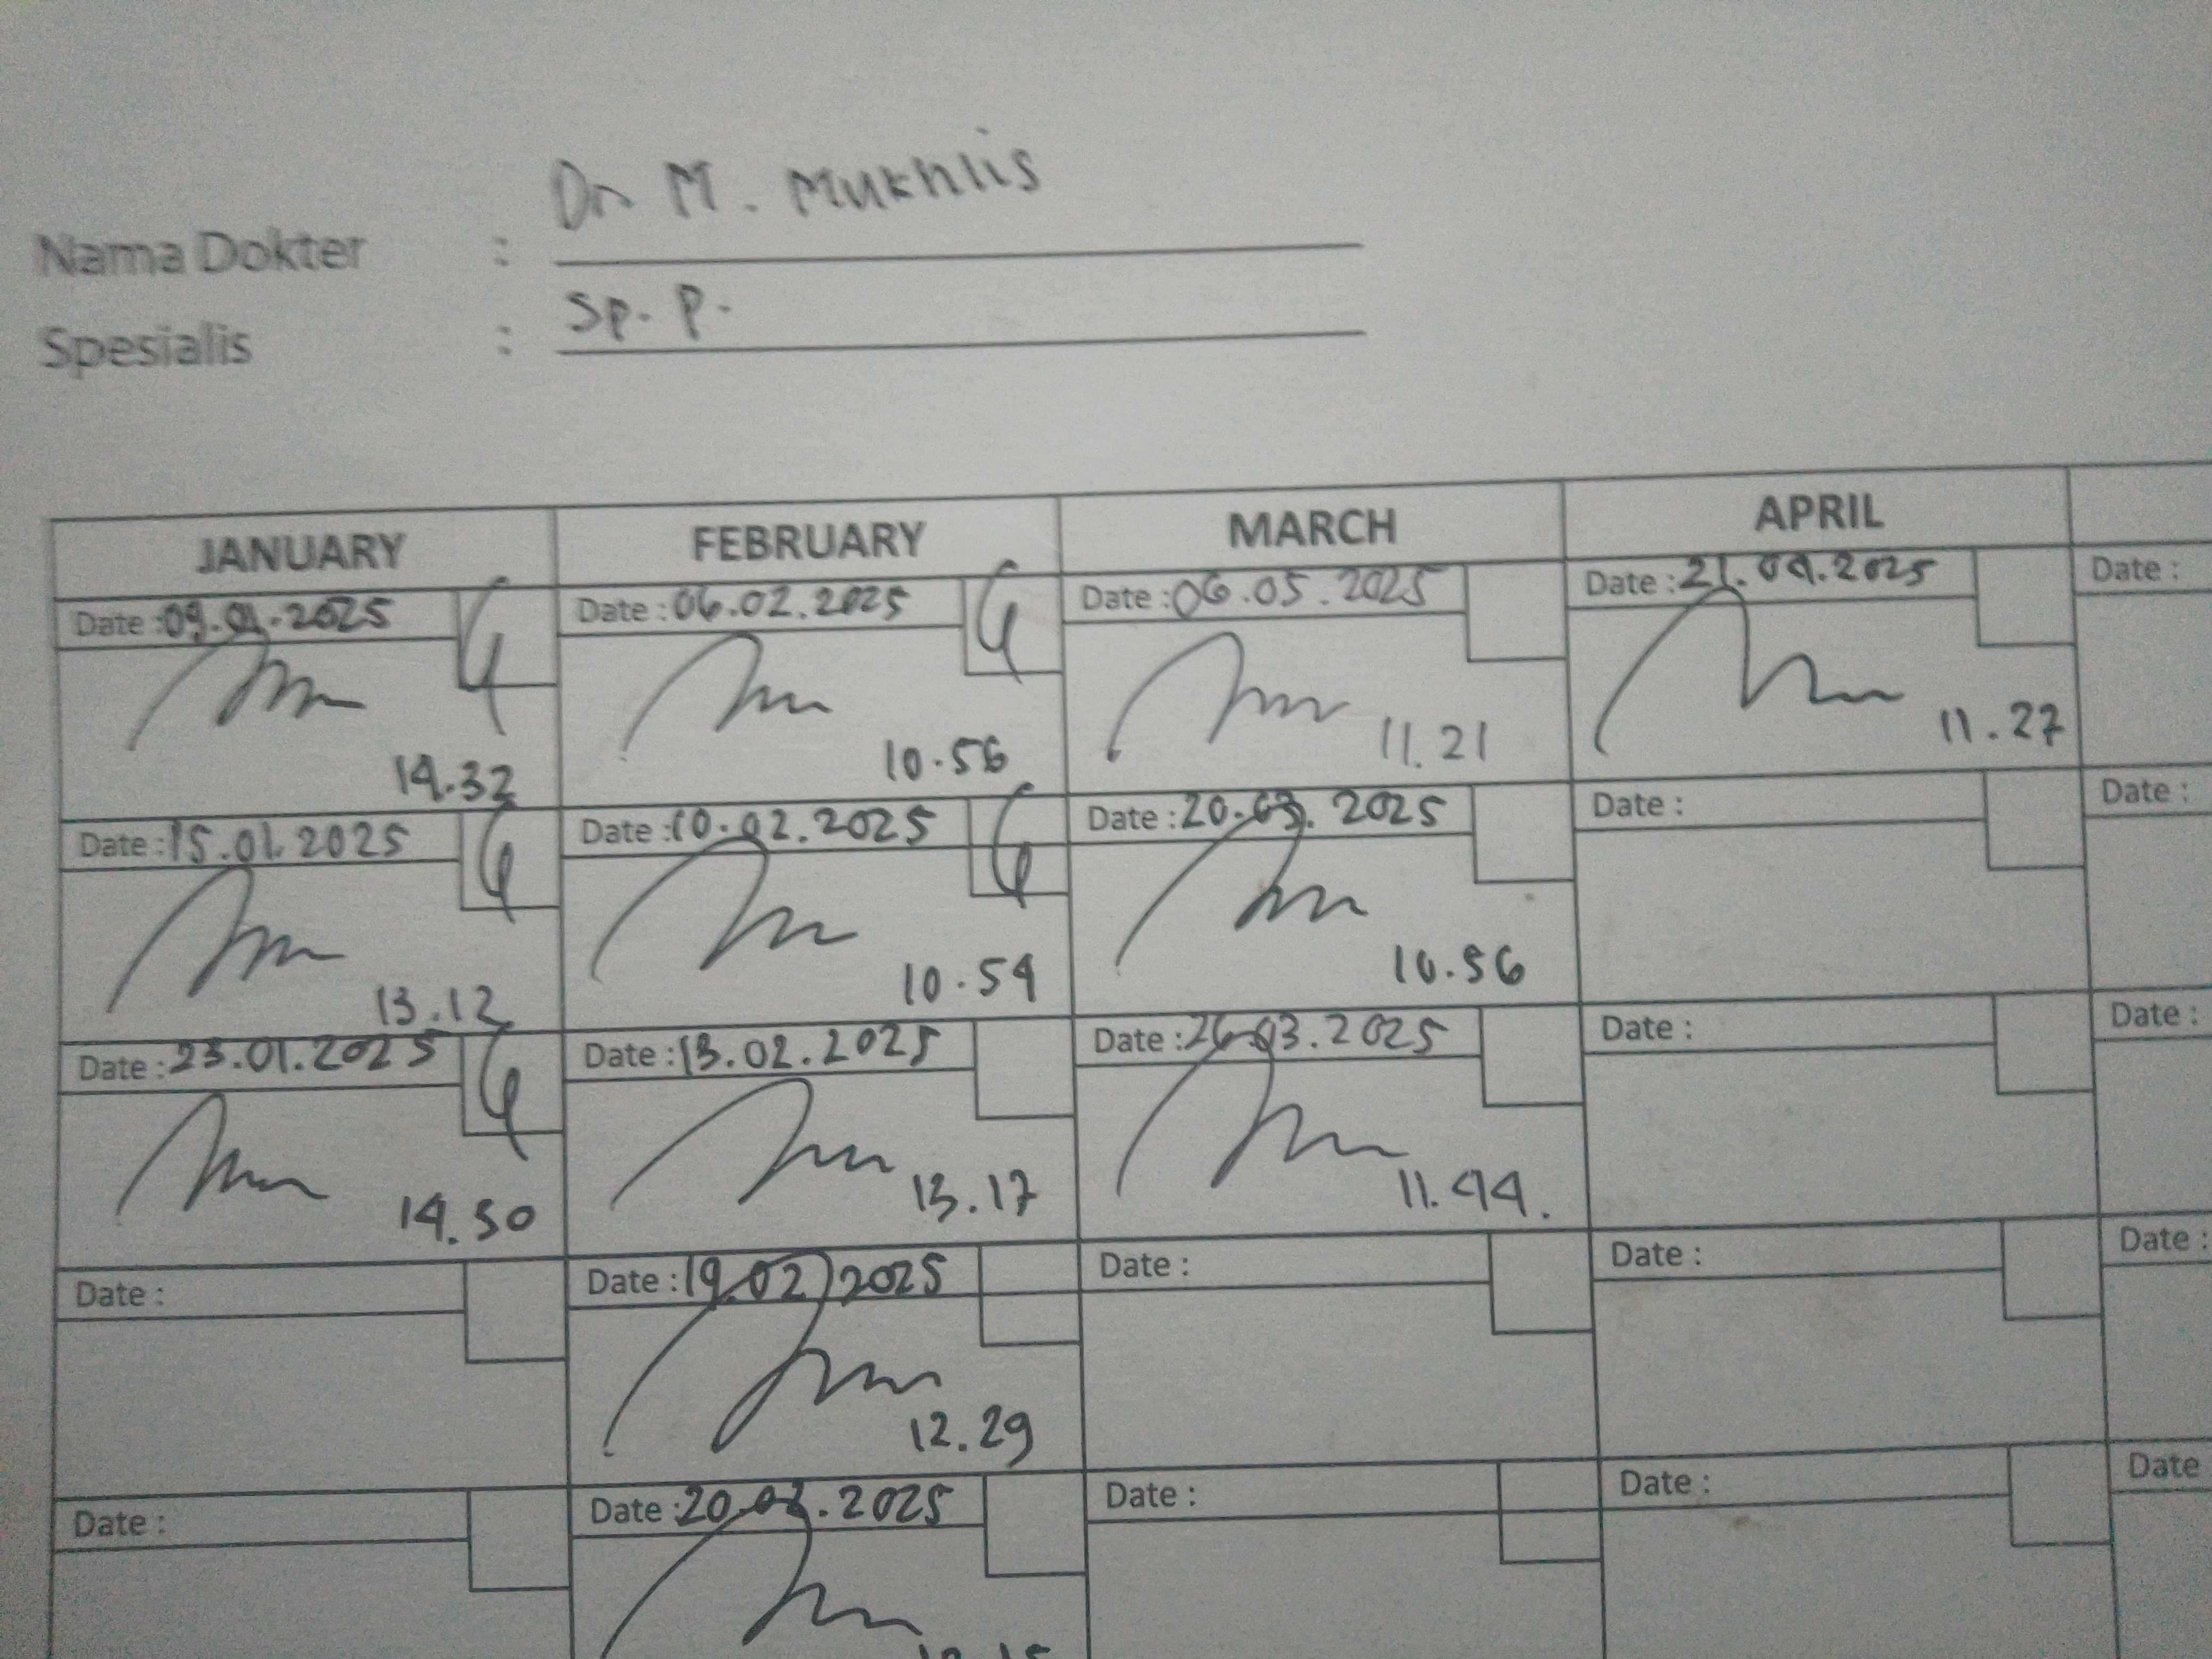 Dr M. Mukhlis
Nama Dokter :
Spesialis : Sp. P.
JANUARY FEBRUARY MARCH APRIL
Date : 09.01.2025 Date : 06.02.2025 Date : 06.05.2025 Date : 21.04.2025 Date :
14.32 10.56 11.21 11.27
Date : 15.01.2025 Date : 10.02.2025 Date : 20.03.2025 Date : Date :
13.12 10.54 10.56
Date : 23.01.2025 Date : 13.02.2025 Date : 26.03.2025 Date : Date :
14.30 13.17 11.44.
Date : Date : 19.02.2025 Date : Date : Date :
12.29
Date : Date : 20.02.2025 Date : Date : Date